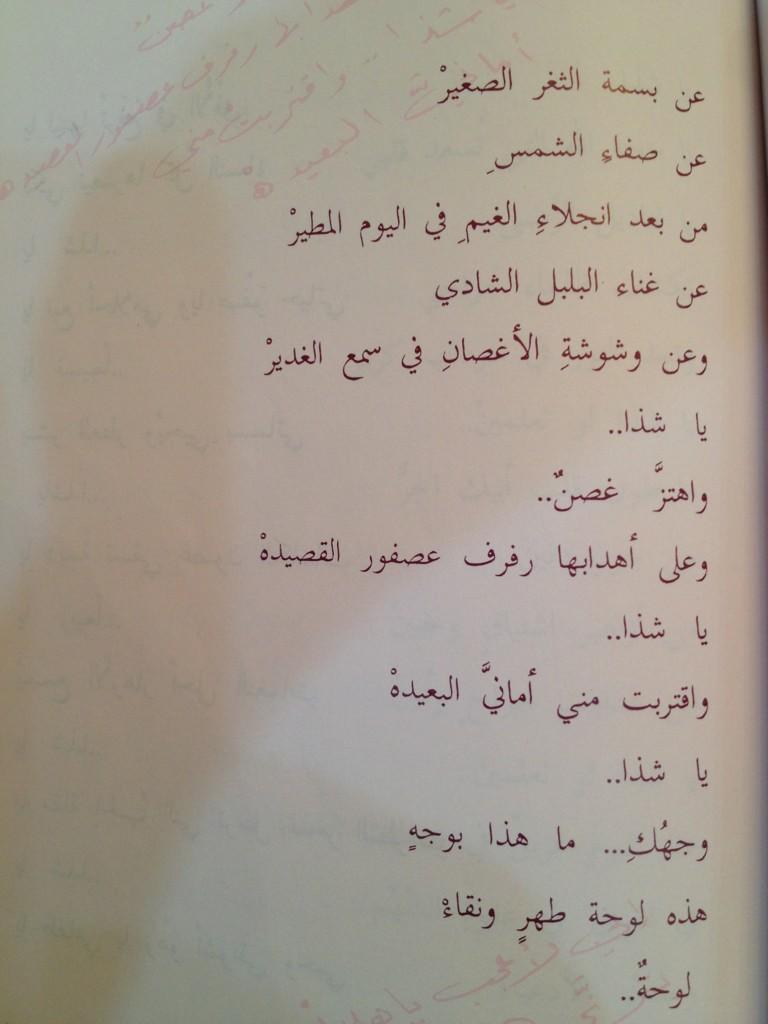 عن بسمة الثغر الصغيرْ
عن صفاءِ الشمسِ
من بعد انجلاءِ الغيمِ في اليوم المطيرْ
عن غناء البلبل الشادي
وعن وشوشةِ الأغصانِ في سمع الغديرْ
يا شذا..
واهتزَّ غصنٌ..
وعلى أهدابها رفرف عصفور القصيدهْ
يا شذا..
واقتربت مني أمانيَّ البعيدهْ
يا شذا..
وجهُكِ... ما هذا بوجهٍ
هذه لوحة طهرٍ ونقاءْ
لوحةٌ..